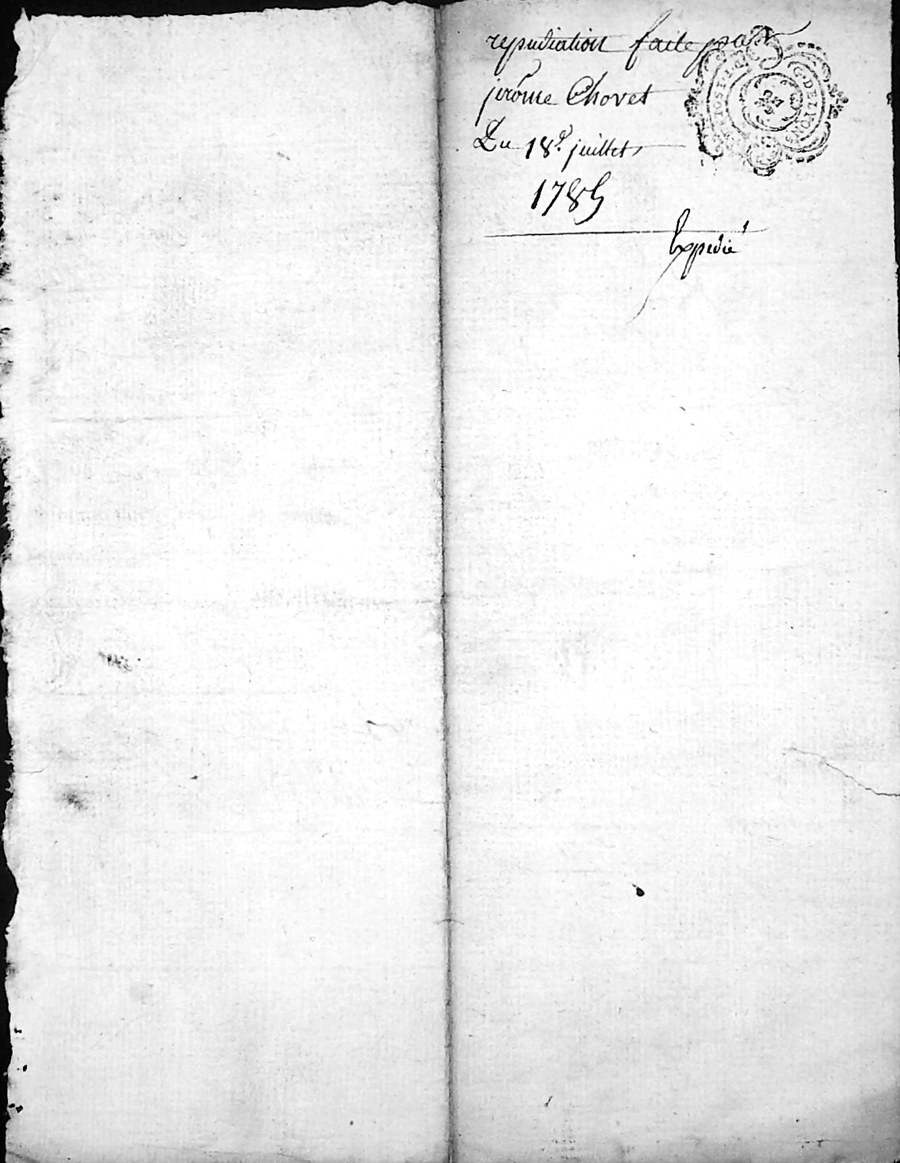 repudiation faite par
jerôme Chovet
Du 18e juillet
1785
Expedié
G. DE LYON